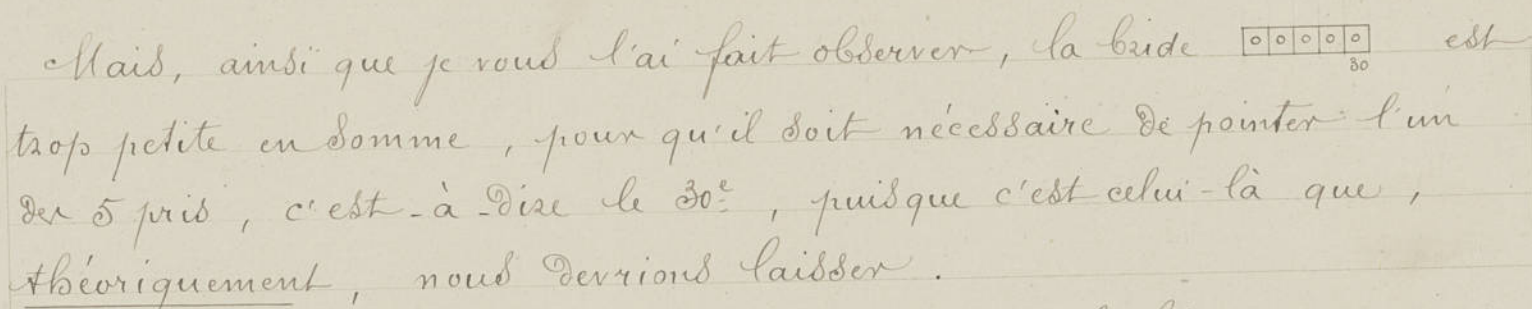 Mais, ainsi que je vous l'ai fait observer, la bride o o o o o 30 est
trop petite en somme, pour qu'il soit nécessaire de pointer l'un
des 5 pris, c'est-à-dire le 30e, puisque c'est celui-là que,
théoriquement, nous devrions laisser.